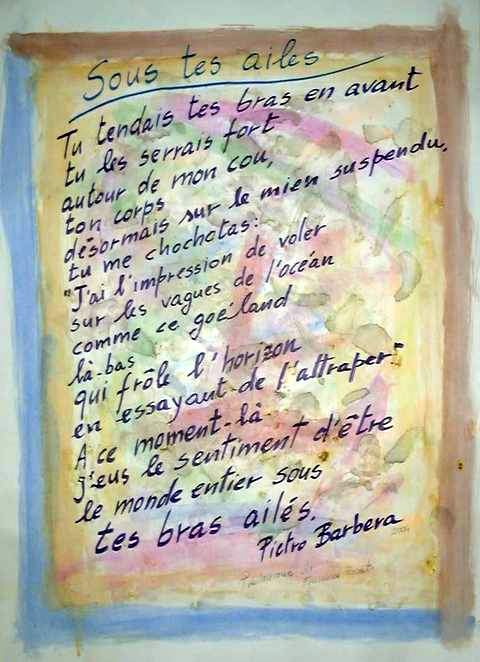 Sous tes ailes
Tu tendais tes bras en avant
tu les serrais fort
autour de mon cou,
ton corps
désormais sur le mien suspendu,
tu me chochotas:
"J'ai l'impression de voler
sur les vagues de l'océan
comme ce goéland
là-bas
qui frôle l'horizon
en essayant de l'attraper."
A ce moment-là
j'eus le sentiment d'être
le monde entier sous
tes bras ailés.
Pietro Barbera